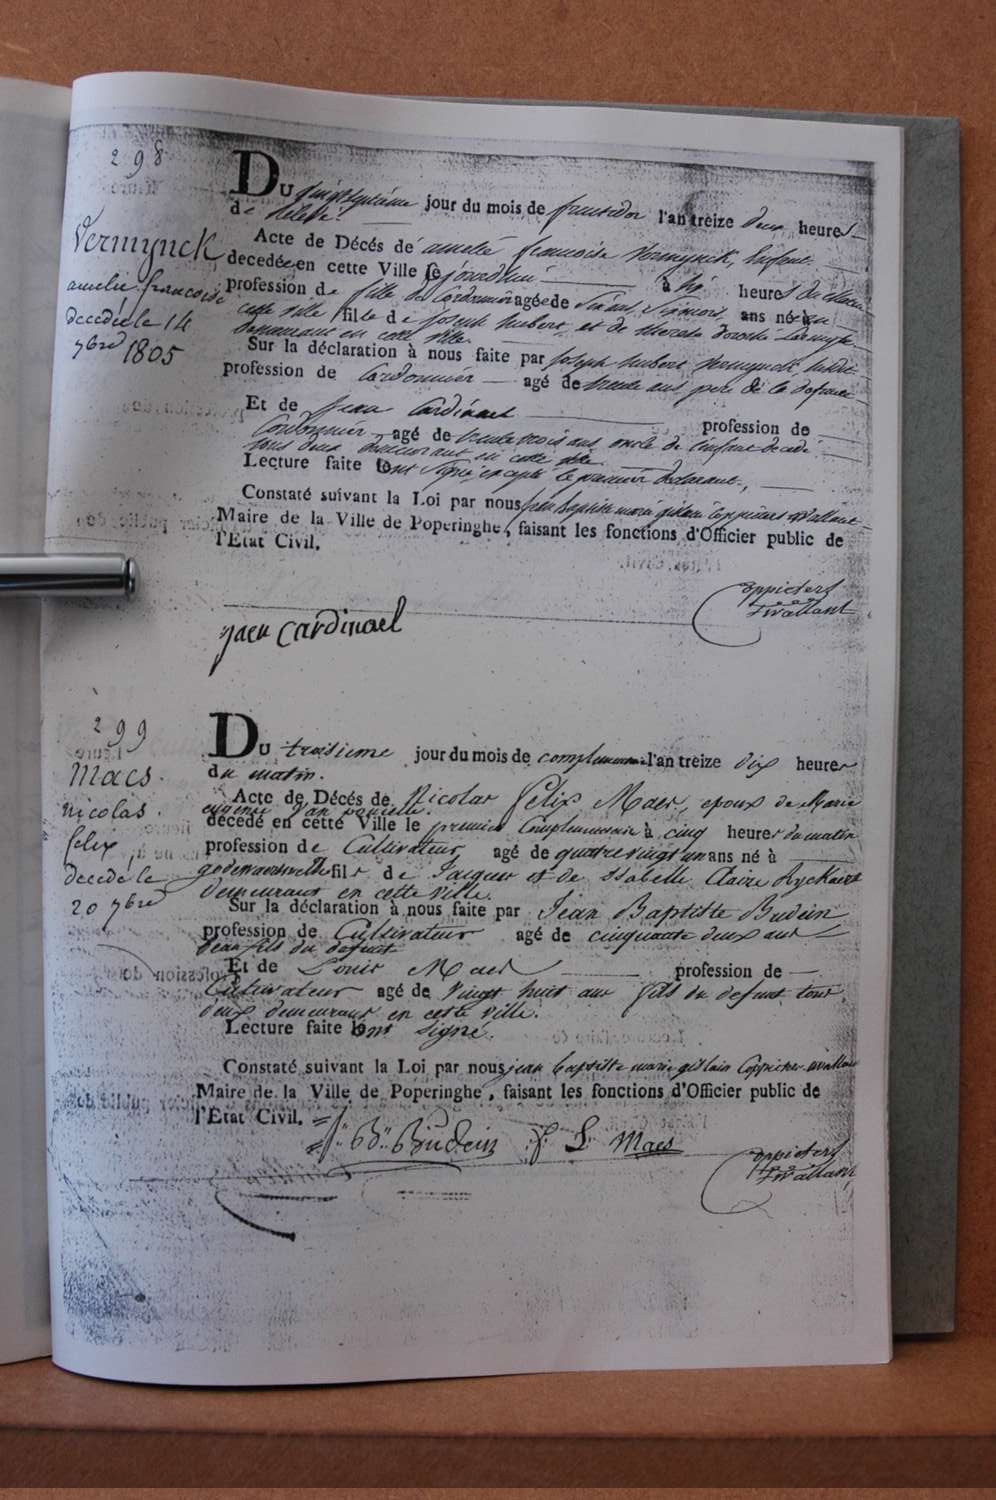 298
Vermynck
amelie francoise
decedé le 14
7bre 1805
Du vingtseptième jour du mois de fructidor l'an treize deux heures
de relevé
Acte de Décés de amelie francoise Vermynck, Enfant
decedée en cette Ville le jourdhui à six heures du matin
profession de fille de Cordonnier agée de Sixans, Sixmois, ans né à en
cette ville fille de joseph hubert et de
demeurant en cette ville.
Sur la déclaration à nous faite par joseph hubert Vermynck,
profession de Cordonnier agé de trente ans pere de la defunte
Et de jean Cardinael profession de
Cordonnier agé de trente trois ans oncle de l'enfant decedé
tous deux demeurant en cette ville
Lecture faite ont signé, excepté le premier declarant,
Constaté suivant la Loi par nous jean baptiste marie gislain Coppieters Wallant
Maire de la Ville de Poperinghe, faisant les fonctions d'Officier public de
l'Etat Civil.
Coppieters
jaen cardinael
Twallant
299
Maes
nicolas
felix,
decede le
20 7bre
Du troisieme jour du mois de complementaire l'an treize dix heures
du matin.
Acte de Décés de Nicolas Felix Maes, epoux de Marie
eugenie Van
décédé en cette Ville le premier Complementaire à cinq heures du matin
profession de Cultivateur agé de quatre vingt un ans né à
fils de Jacques et de Isabelle Claire Ryckaert
demeurant en cette ville.
Sur la déclaration à nous faite par Jean Baptiste Budein
profession de Cultivateur agé de cinquante deux ans
beaufils du defunt
Et de Louis Maes profession de
Cultivateur agé de vingt huit ans fils du defunt tous
deux demeurant en cette ville.
Lecture faite ont signé.
Constaté suivant la Loi par nous jean baptiste marie gislain Coppieters Wallant
Maire de la Ville de Poperinghe, faisant les fonctions d'Officier public de
l'Etat Civil.
J: B: Budein F L Maes
Coppieters
Twallant